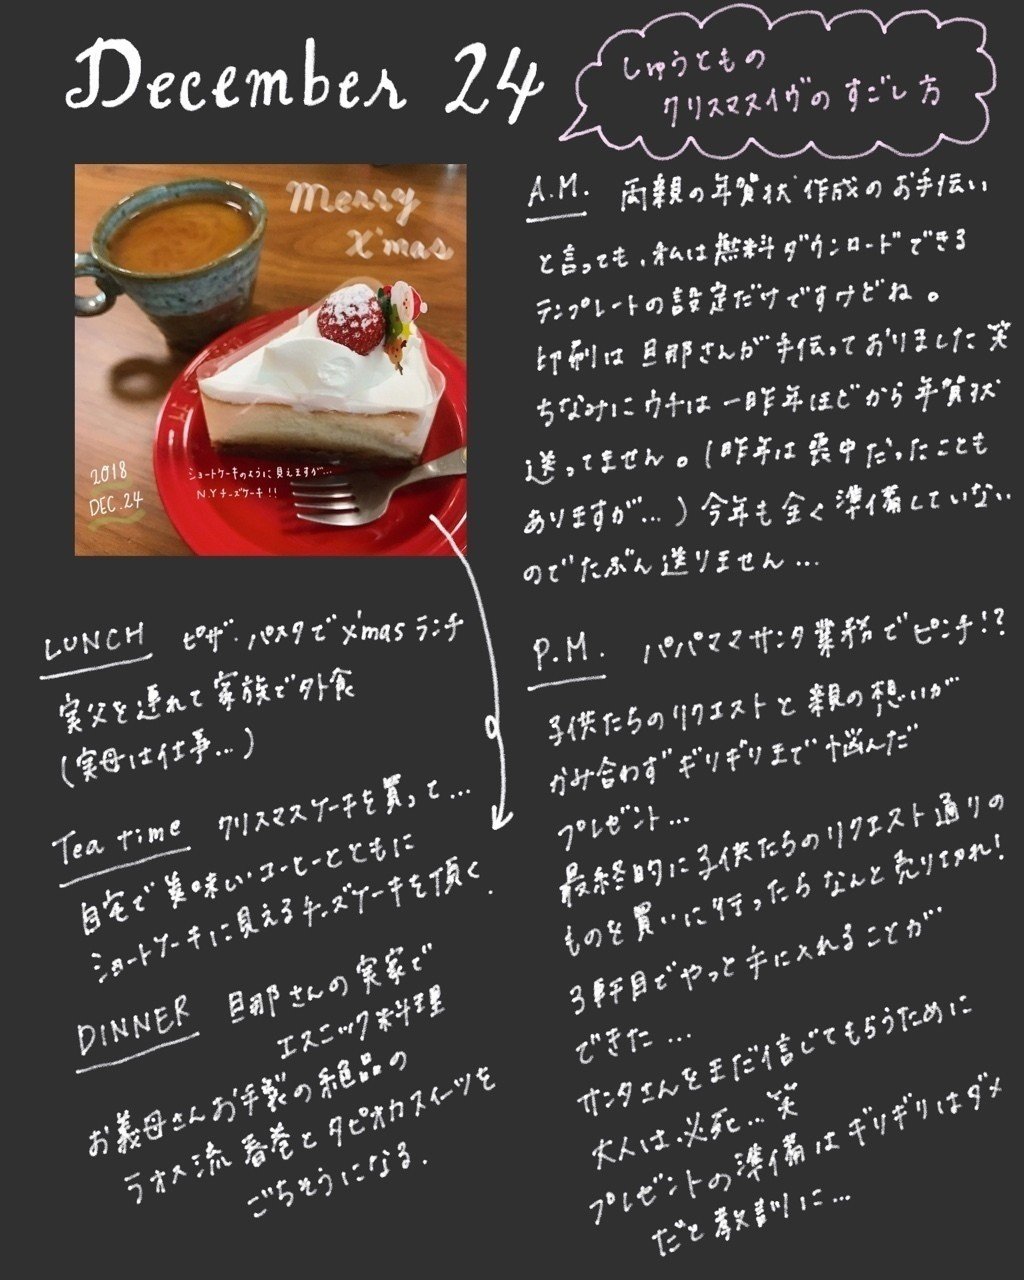 December 24
しゅうともの
クリスマスイヴのすごし方
Merry
X'mas
2018
DEC.24
ショートケーキのように見えますが…
N.Yチーズケーキ!!
A.M. 両親の年賀状作成のお手伝い
と言っても、私は無料ダウンロードできる
テンプレートの設定だけですけどね。
印刷は旦那さんが手伝っておりました笑
ちなみにウチは一昨年ほどから年賀状
送ってません。(昨年は喪中だったことも
ありますが…)今年も全く準備していない
のでたぶん送りません…
LUNCH ピザ・パスタでX'masランチ
実父を連れて家族で外食
(実母は仕事…)
Tea time クリスマスケーキを買って…
自宅で美味しいコーヒーとともに
ショートケーキに見えるチーズケーキを頂く.
DINNER 旦那さんの実家で
エスニック料理
お義母さんお手製の絶品の
ラオス流春巻とタピオカスイーツを
ごちそうになる.
P.M. パパママサンタ業務でピンチ!?
子供たちのリクエストと親の想いが
かみ合わずギリギリまで悩んだ
プレゼント…
最終的に子供たちのリクエスト通りの
ものを買いに行ったらなんと売り切れ!
3軒目でやっと手に入れることが
できた…
サンタさんをまだ信じてもらうために
大人は必死…笑
プレゼントの準備はギリギリはダメ
だと教訓に…